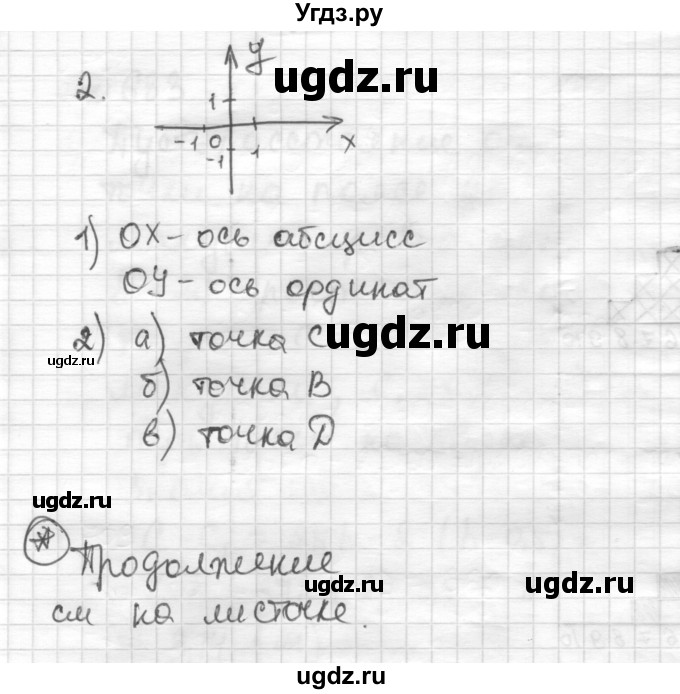 Угдз.ру
2.
y
ugdz.ru
1
-1 0 1 x
-1
1) OX - ось абсцисс
OY - ось ординат
2) а) точка C
ugdz.ru
ugdz.ru
б) точка B
в) точка D
ugdz.ru
ugdz.ru
* Продолжение
ugdz.ru
ugdz.ru
см на листочке.
ugdz.ru